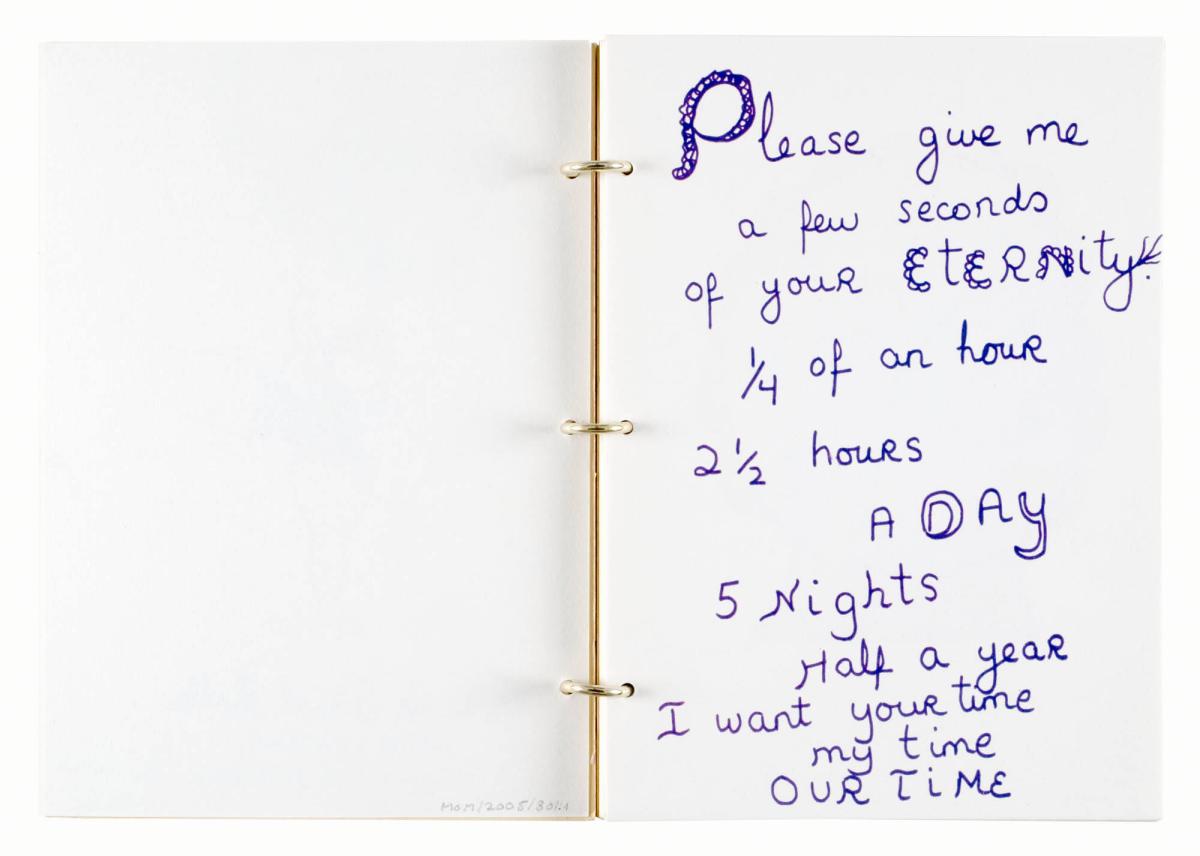 Please give me
a few seconds
of your EtERNity!
1/4 of an hour
2 1/2 hours
A DAy
5 Nights
Half a yeaR
I want youR time
my time
OUR TiME